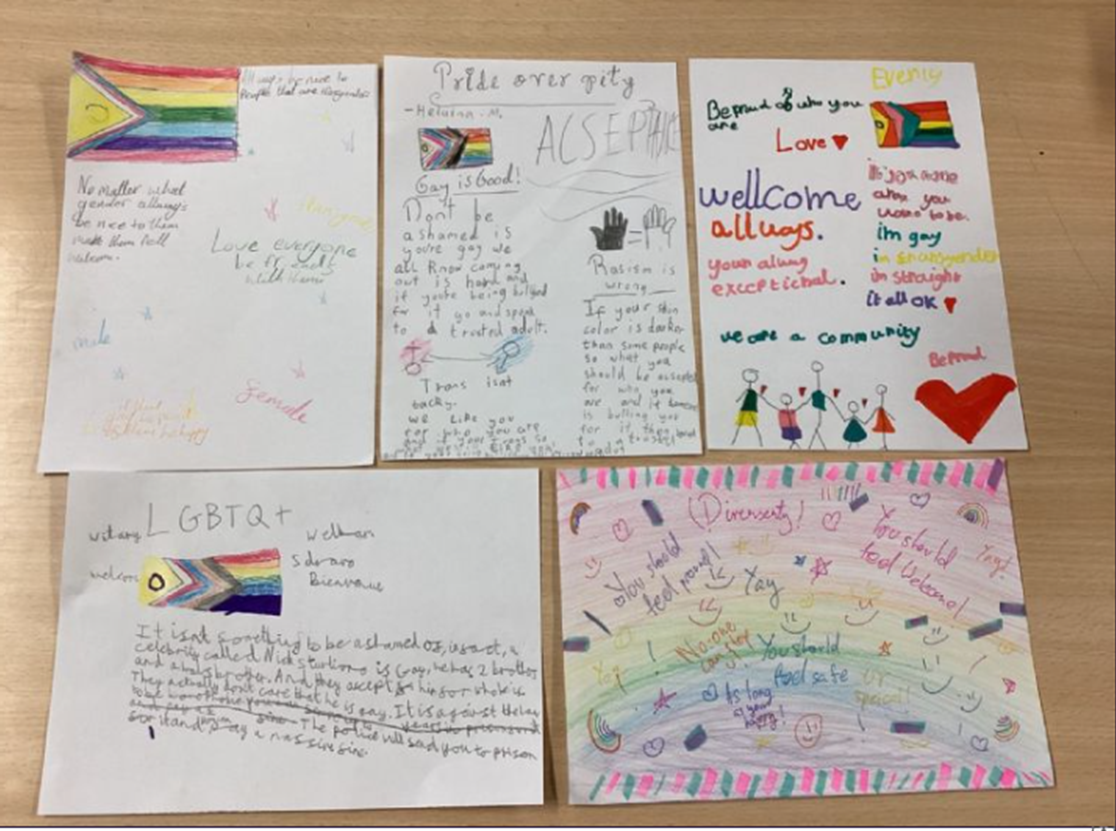 Always be nice to
People that are
No matter what
gender allways
be nice to them
make them fell
welcom.
Love everyone
be friendly
with them
male
female
Pride over pity
ACSEPTANCE
Gay is Good!
Dont be
a shamed is
you're gay we
all know coming
out is hard and
if you're being bullyed
for it go and speak
to a trusted adult.
Trans isnt
tacky.
we Like you
for who you are
Rasism is
wrong
If your skin
color is darker
than some people
so what you
should be accepted
for who you
are and if someone
is bulling you
for it then
to a trusted
Evenly
Be proud of who you
are
Love
wellcome
allways.
your alwag
exceptichal.
you
want to be.
i'm gay
im straight
it all OK
we are a community
Be proud
LGBTQ+
witamy
welcom
Bienvenue
It isnt something to be ashamed of, infact, a
celebrity called Nick is Gay, he has 2 brothers
and a half brother. And they accept him for who he is
They actually dont care that he is gay. It is against the law
to be
The police will send you to prison
for it and pay a massive fine.
Diversety!
You should
feel proud!
You should
feel welcome!
Yay!
Yay
No-one
can stop
You should
feel safe
or
special!
Yay
As long
your
happy!